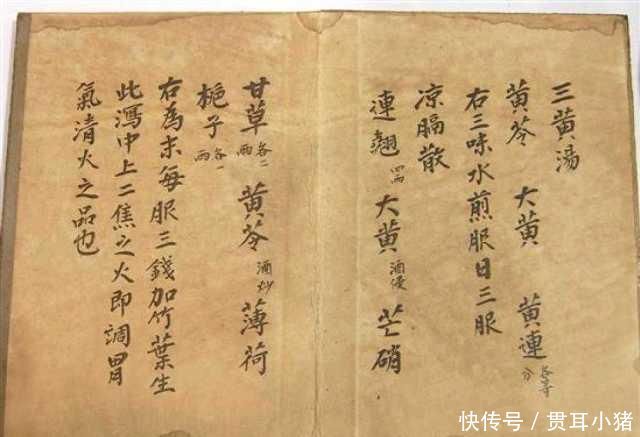 三黄湯
黄苓 大黄 黄連 各等分
右三味水煎服日三服
凉膈散
連翹 四兩 大黄 酒侵 芒硝
甘草 各二兩 黄苓 酒炒 薄荷
梔子 各一兩
右為末每服三錢加竹葉生
此瀉中上二焦之火即調胃
氣清火之品也
快传号/贯耳小猪